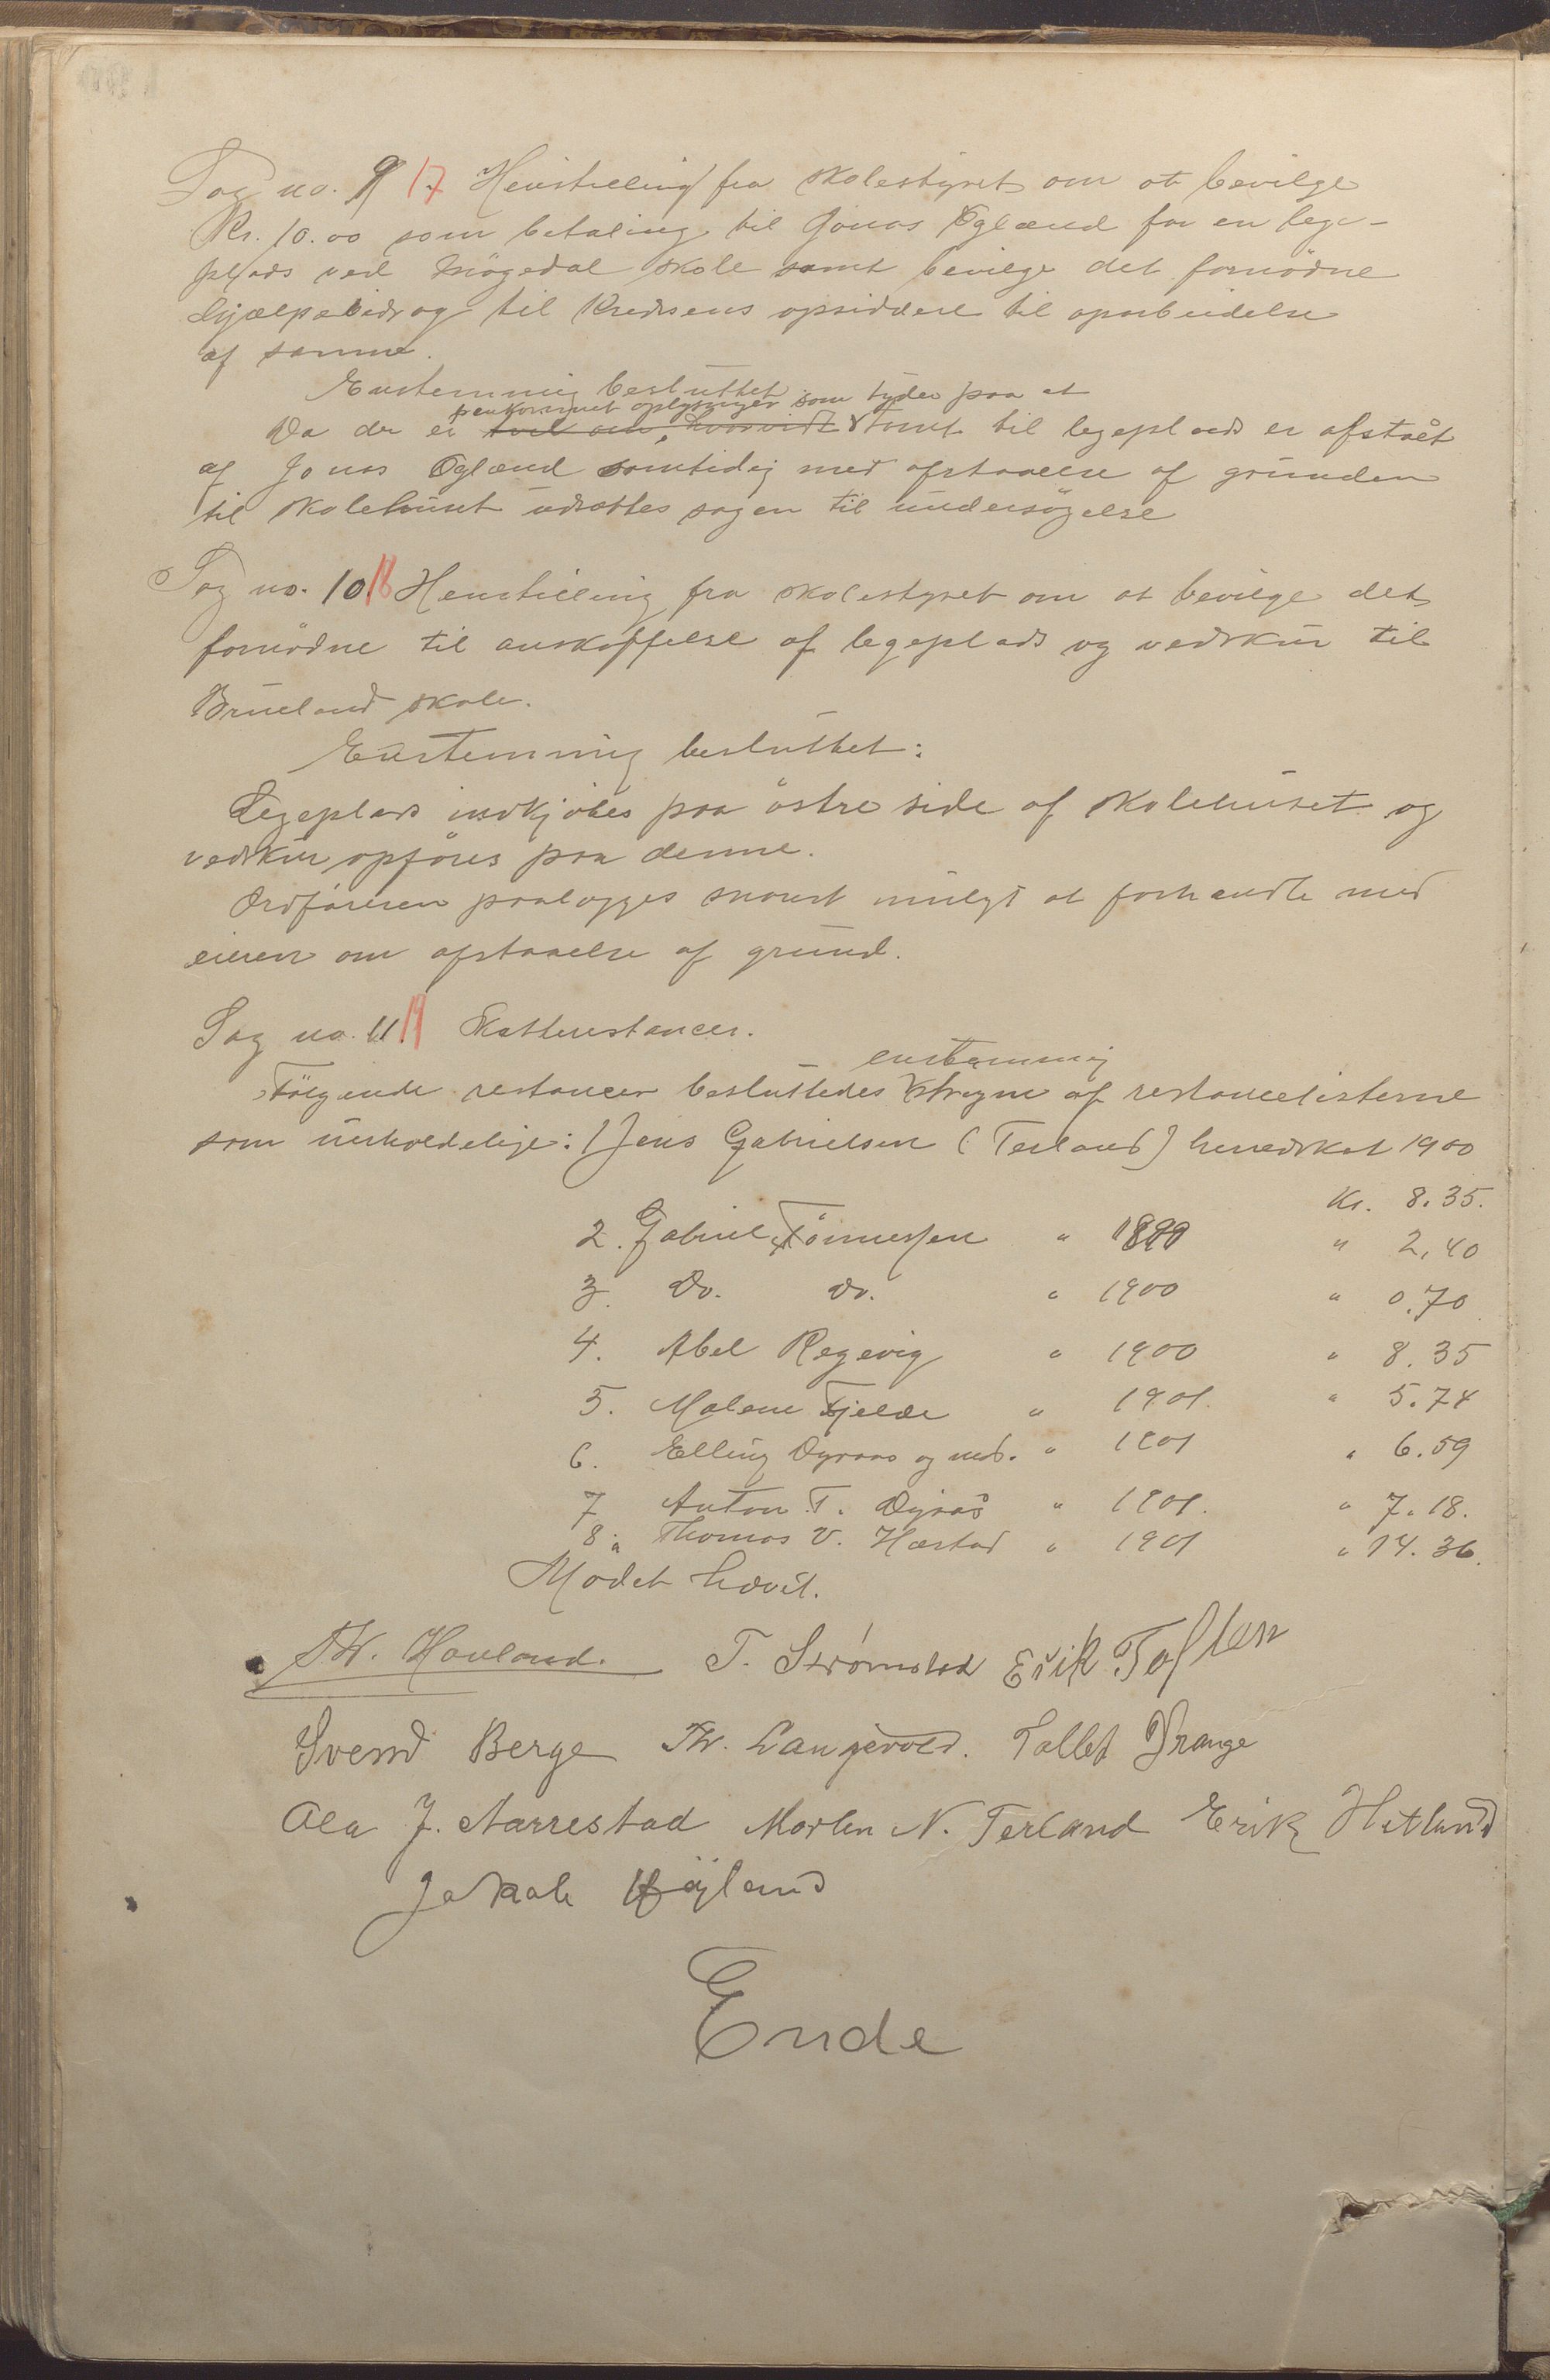 Sag no. 9 17. Henstilling fra skolestyret om at bevilge
Kr. 10.00 som betaling til Jonas Ögland for en lege-
plads ved Mögedal skole samt bevilge det fornödne
hjælpebidrag til Kredsens opsiddere til oparbeidelse
af samme.
Enstemmig besluttet
fremkommet oplysninger som tyder paa at
Da der er tvil om, hvorvidt tomt til legeplads er afstaat
af Jonas Ögland samtidig med afstaaelse af grunden
til skolehuset udsættes sagen til undersögelse
Sag no. 10 18 Henstilling fra skolestyret om at bevilge det
fornödne til anskaffelse af legeplads og vedskur til
Brueland skole.
Enstemmig besluttet:
Legeplads indkjöbes paa östre side af skolehuset og
vedskur opföres paa denne.
Ordföreren paalægges snarest muligt at forhandle med
eieren om afstaaelse af grund.
Sag no. 11 19 Skatterestancer.
enstemmig
Fölgende restancer besluttedes strögne af restancelisterne
som uerholdelige: 1) Jens Gabrielsen (Terland) herredskat 1900
Kr. 8.35.
2. Gabriel Tönnessen " 1899 " 2,40
3. Do. Do. " 1900 " 0.70
4. Abel Regevig " 1900 " 8.35
5. Malene Fjelde " 1901. " 5.74
6. Elling Dyraas og ved. " 1901 " 6.59
7 Anton T. Dyraas " 1901. " 7.18.
8. Thomas V. Hæstad " 1901 " 14.36.
Mödet hævet.
Th. Hovland. T. Strømstad Erik Toften
Svend Berge Th. Langevold. Tollef Drange
Ola J. Aarrestad Morten N. Terland Erik Hetland
Jakob Höiland
Ende